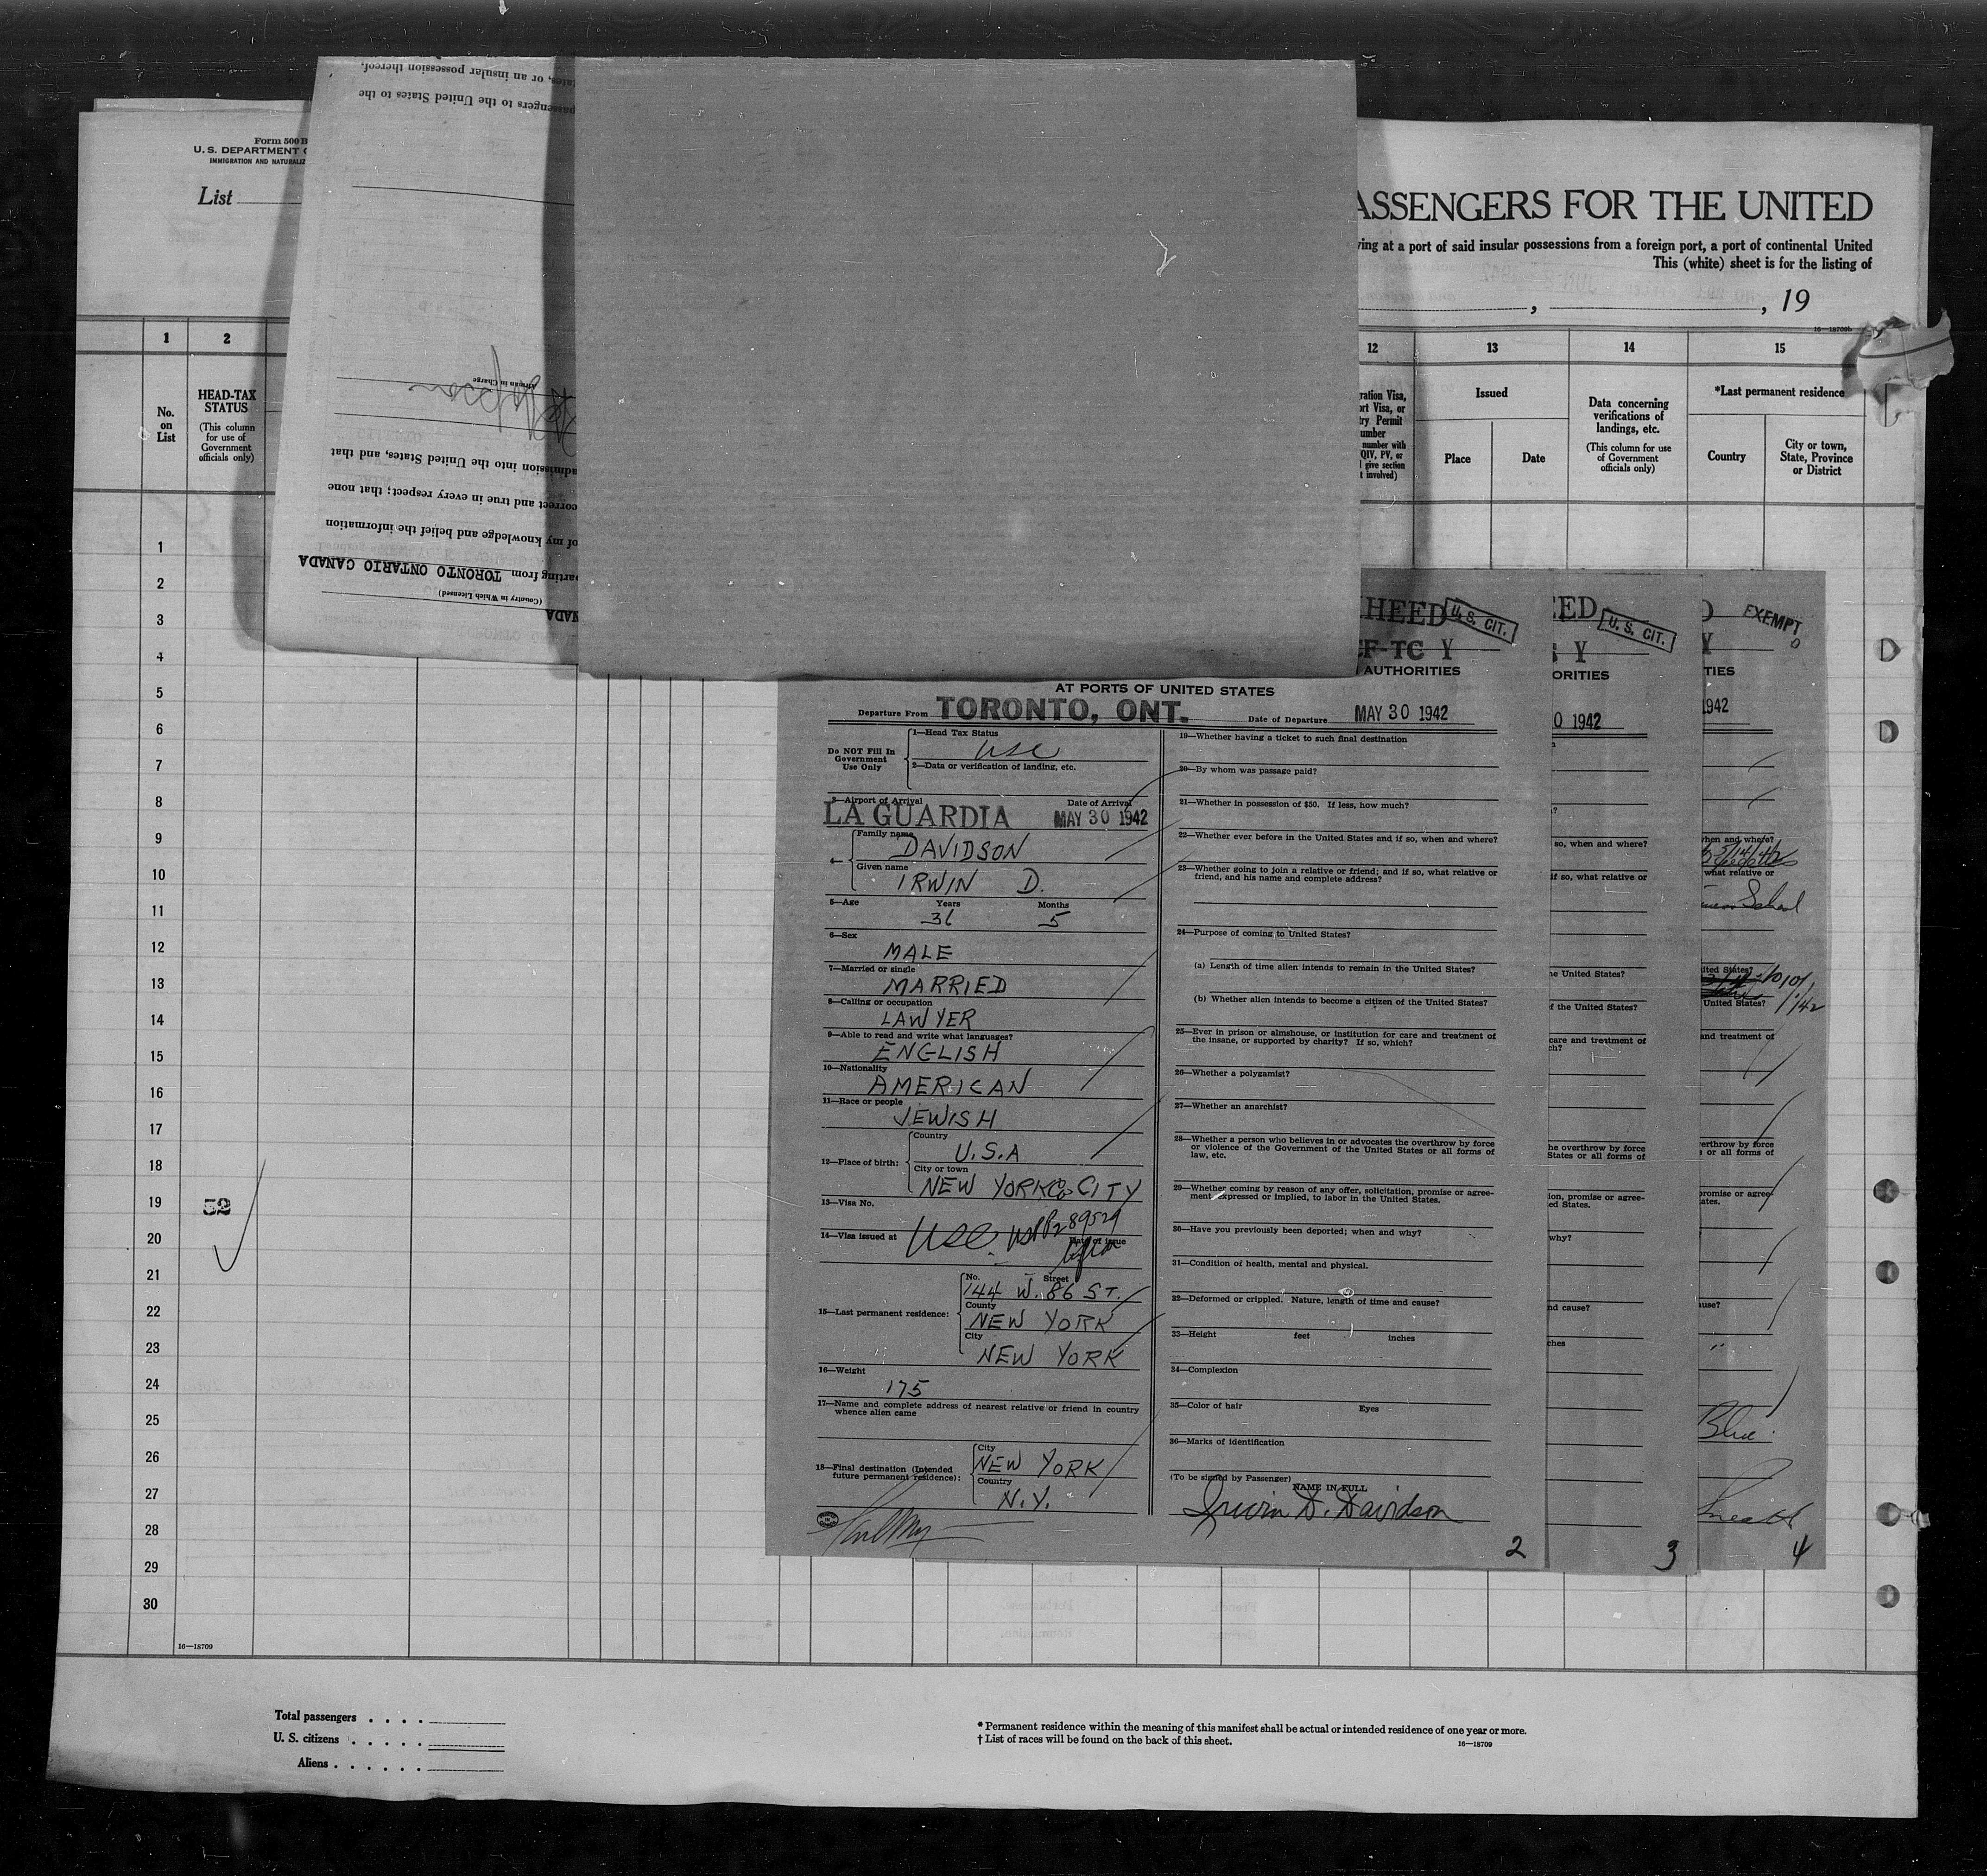 Form 500 B
U. S. DEPARTMENT
IMMIGRATION AND
List
ates, or an insular possession thereof,
passengers to the United States to the
Airman in Charge
admission into the United States, and that
correct and true in every respect; that none
of my knowledge and belief the information
parting from TORONTO ONTARIO CANADA
(Country in Which Licensed)
NADA
ASSENGERS FOR THE UNITED
ving at a port of said insular possessions from a foreign port, a port of continental United
This (white) sheet is for the listing of
, , 19
16—18709b
1 2 12 13 14 15
No.
on
List
HEAD-TAX
STATUS
(This column
for use of
Government
officials only)
ration Visa,
ort Visa, or
try Permit
umber
number with
QIV, PV, or
give section
involved)
Issued
Place Date
Data concerning
verifications of
landings, etc.
(This column for use
of Government
officials only)
*Last permanent residence
Country
City or town,
State, Province
or District
1
2
3
4
5
6
7
8
9
10
11
12
13
14
15
16
17
18
19 52
20
21
22
23
24
25
26
27
28
29
30
16—18709
HEED U. S. CIT.
CF-TC Y
AUTHORITIES
AT PORTS OF UNITED STATES
Departure From TORONTO, ONT. Date of Departure MAY 30 1942
Do NOT Fill In
Government
Use Only
1—Head Tax Status
USC
2—Data or verification of landing, etc.
3—Airport of Arrival Date of Arrival
LA GUARDIA MAY 30 1942
4—
Family name
DAVIDSON
Given name
IRWIN D.
5—Age Years Months
36 5
6—Sex
MALE
7—Married or single
MARRIED
8—Calling or occupation
LAWYER
9—Able to read and write what languages?
ENGLISH
10—Nationality
AMERICAN
11—Race or people
JEWISH
12—Place of birth:
Country
U.S.A
City or town
NEW YORK CITY
13—Visa No.
14—Visa issued at USC. Date of issue
15—Last permanent residence:
No. Street
144 W. 86 ST.
County
NEW YORK
City
NEW YORK
16—Weight
175
17—Name and complete address of nearest relative or friend in country
whence alien came
18—Final destination (Intended
future permanent residence):
City
NEW YORK
Country
N.Y.
19—Whether having a ticket to such final destination
20—By whom was passage paid?
21—Whether in possession of $50. If less, how much?
22—Whether ever before in the United States and if so, when and where?
23—Whether going to join a relative or friend; and if so, what relative or
friend, and his name and complete address?
24—Purpose of coming to United States?
(a) Length of time alien intends to remain in the United States?
(b) Whether alien intends to become a citizen of the United States?
25—Ever in prison or almshouse, or institution for care and treatment of
the insane, or supported by charity? If so, which?
26—Whether a polygamist?
27—Whether an anarchist?
28—Whether a person who believes in or advocates the overthrow by force
or violence of the Government of the United States or all forms of
law, etc.
29—Whether coming by reason of any offer, solicitation, promise or agree-
ment expressed or implied, to labor in the United States.
30—Have you previously been deported; when and why?
31—Condition of health, mental and physical.
32—Deformed or crippled. Nature, length of time and cause?
33—Height feet inches
34—Complexion
35—Color of hair Eyes
36—Marks of identification
(To be signed by Passenger)
NAME IN FULL
Irwin D. Davidson
2
EED U. S. CIT.
Y
ORITIES
0 1942
so, when and where?
if so, what relative or
he United States?
f the United States?
care and treatment of
ch?
he overthrow by force
States or all forms of
ion, promise or agree-
ed States.
why?
nd cause?
ches
3
EXEMPT
Y
TIES
1942
hen and where?
what relative or
School
ited States?
United States?
and treatment of
erthrow by force
s or all forms of
promise or agree-
ates.
ause?
Blue
4
Total passengers . . . .
U. S. citizens . . . . .
Aliens . . . . . .
* Permanent residence within the meaning of this manifest shall be actual or intended residence of one year or more.
† List of races will be found on the back of this sheet.
16—18709